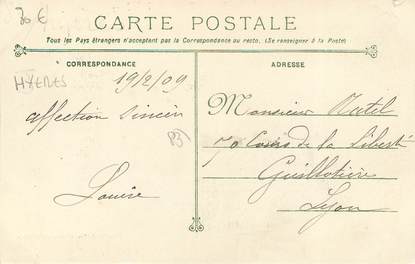 30 €
CARTE POSTALE
Tous les Pays étrangers n'acceptent pas la Correspondance au recto. (Se renseigner à la Poste)
CORRESPONDANCE
ADRESSE
HYERES
19/2/09
affection sincère
Louise
Monsieur
70 Cours de la Liberté
Guillotière
Lyon